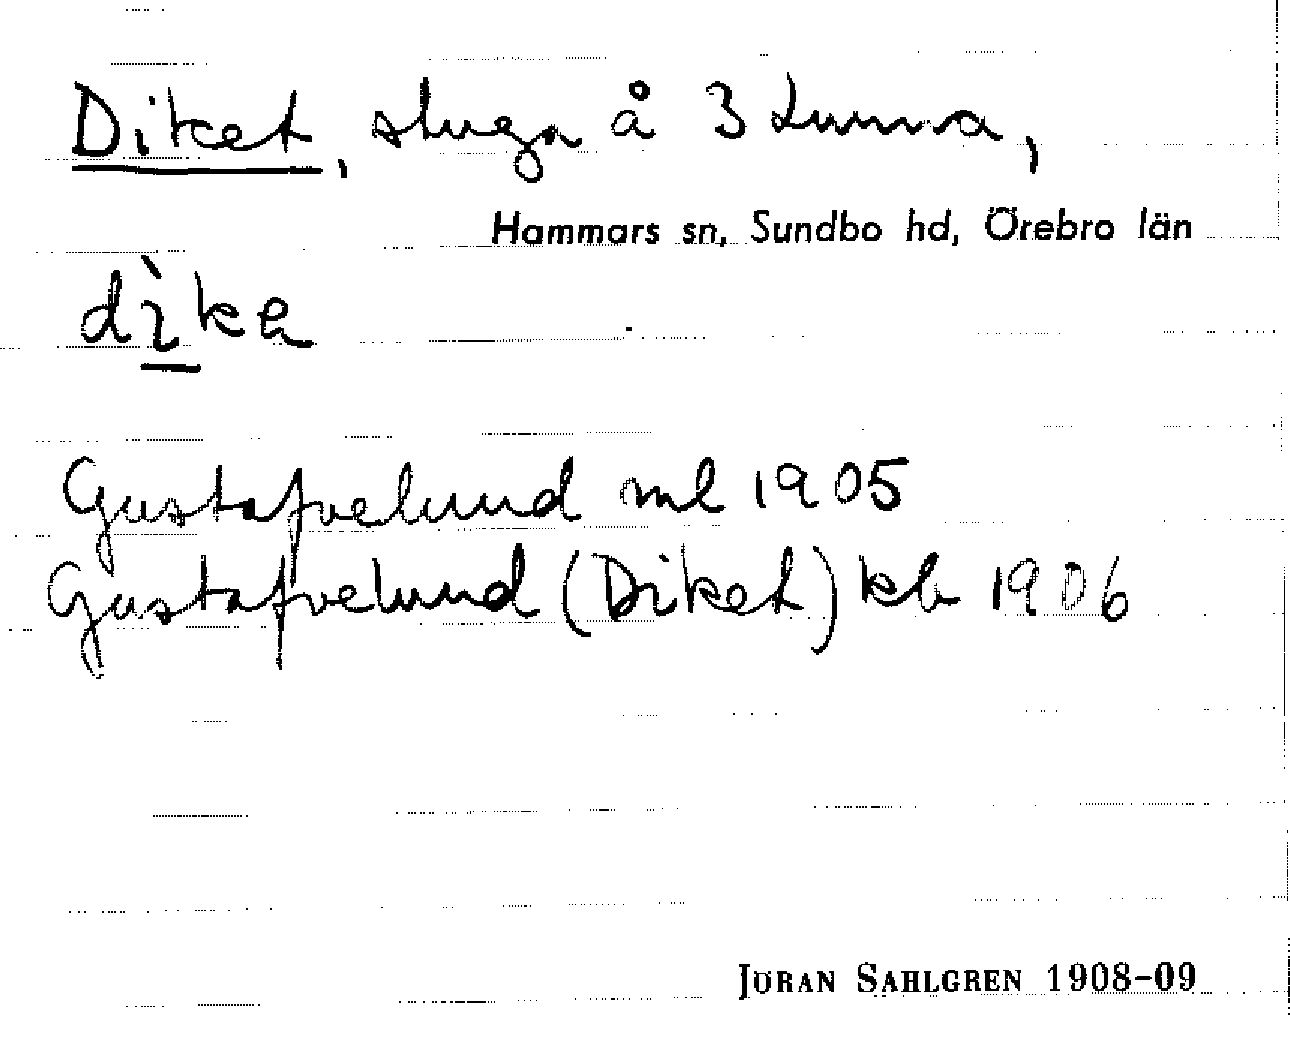 Diket, stuga å 3 Lunna,
Hammars sn, Sundbo hd, Örebro län
dìka
Gustafvelund ml 1905
Gustafvelund (Diket) kb 1906
JÖRAN SAHLGREN 1908-09